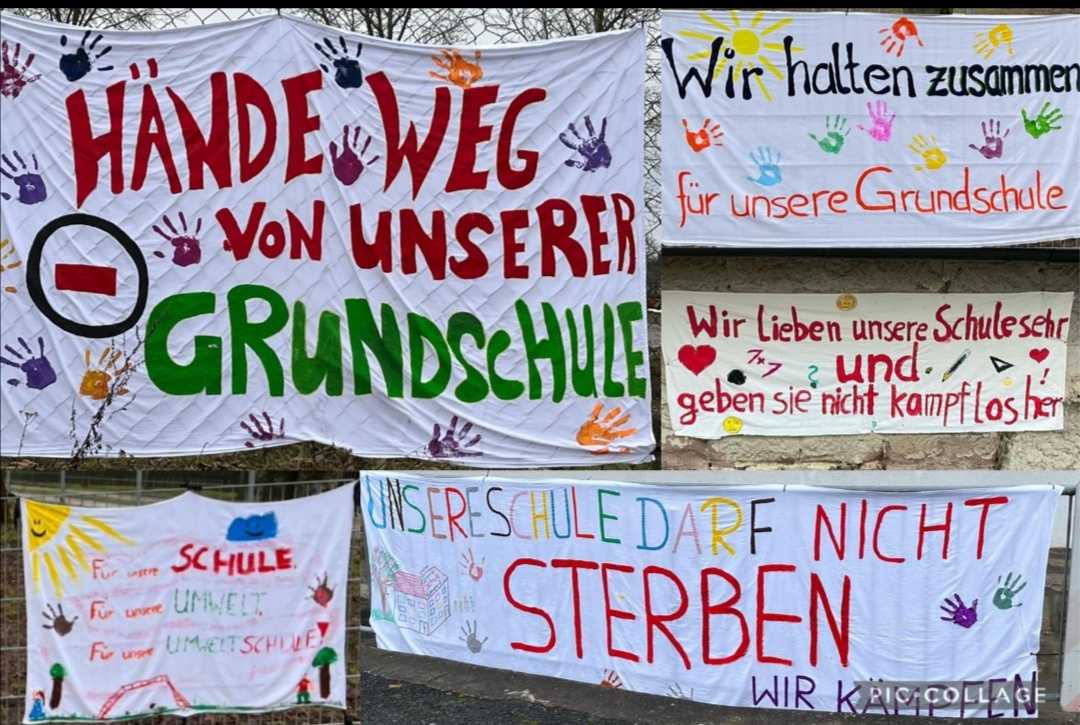 HÄNDE WEG
VON UNSERER
GRUNDSCHULE
Wir halten zusammen
für unsere Grundschule
Wir lieben unsere Schule sehr
7x7
?
und
!
geben sie nicht kampflos her
Für unsere SCHULE.
Für unsere UMWELT.
Für unsere UMWELTSCHULE!
UNSERE SCHULE DARF NICHT
STERBEN
WIR KÄMPFEN
PIC COLLAGE